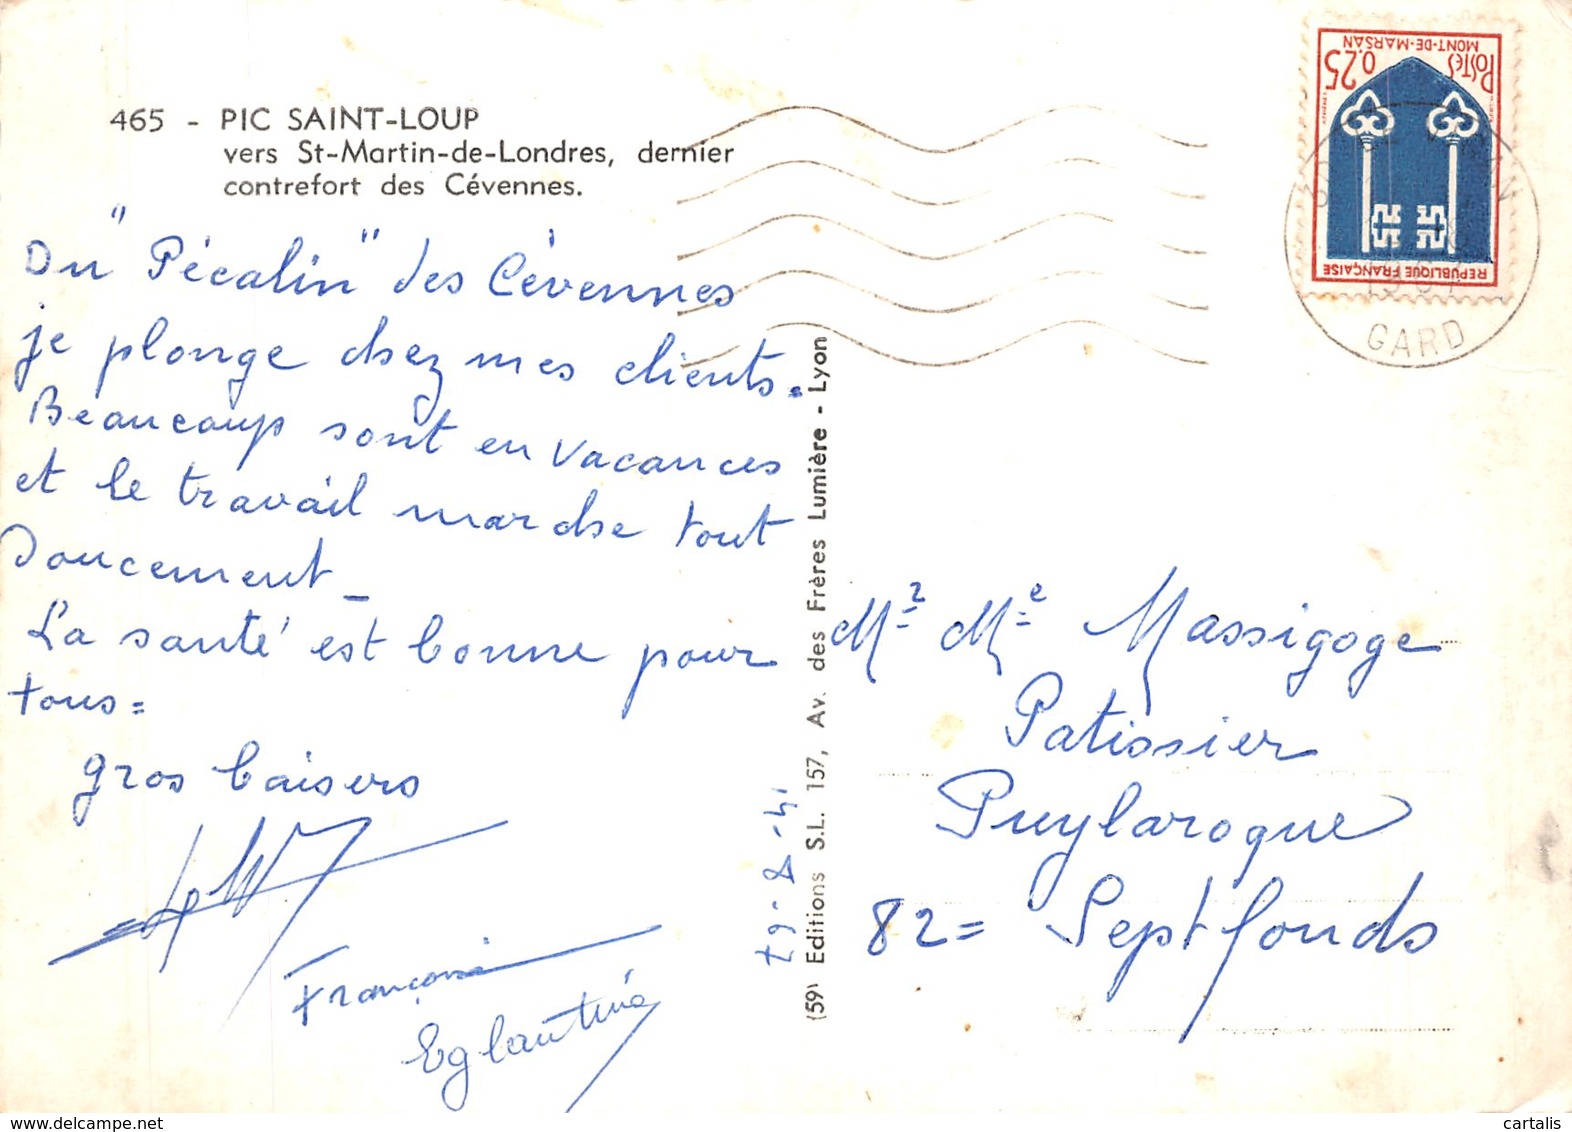 465 - PIC SAINT-LOUP
vers St-Martin-de-Londres, dernier
contrefort des Cévennes.
Du "Pécalin" des Cévennes
je plonge chez mes clients.
Beaucoup sont en vacances
et le travail marche tout
doucement_
La santé est bonne pour
tous=
gros baisers
Françoise
Eglantine
14-8-67
(59) Editions S.L. 157, Av. des Frères Lumière - Lyon
POSTES 0,25
MONT-DE-MARSAN
REPUBLIQUE FRANÇAISE
1967
GARD
Mr Me Massigoge
Patissier
Puylaroque
82= Septfonds
cartalis